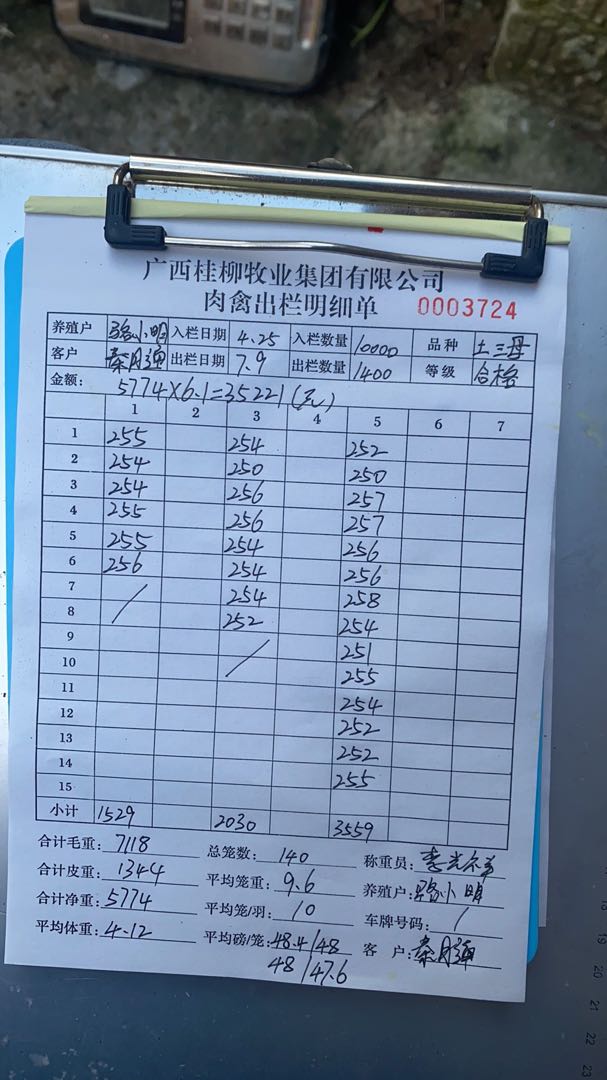 广西桂柳牧业集团有限公司
肉禽出栏明细单 0003724
养殖户 骆小明 入栏日期 4.25 入栏数量 10000 品种 土三母
客户 秦月弹 出栏日期 7.9 出栏数量 1400 等级 合格
金额: 5774×6.1=35221(元)
1 2 3 4 5 6 7
1 255 254 252
2 254 250 250
3 254 256 257
4 255 256 257
5 255 254 256
6 256 254 256
7 / 254 258
8 252 254
9 / 251
10 255
11 254
12 252
13 252
14 255
15
小计 1529 2030 3559
合计毛重: 7118 总笼数: 140 称重员:
合计皮重: 1344 平均笼重: 9.6 养殖户: 骆小明
合计净重: 5774 平均笼/羽: 10 车牌号码: /
平均体重: 4.12 平均磅/笼: 48.4/48 客户: 秦月弹
48/47.6
19
20
21
22
23